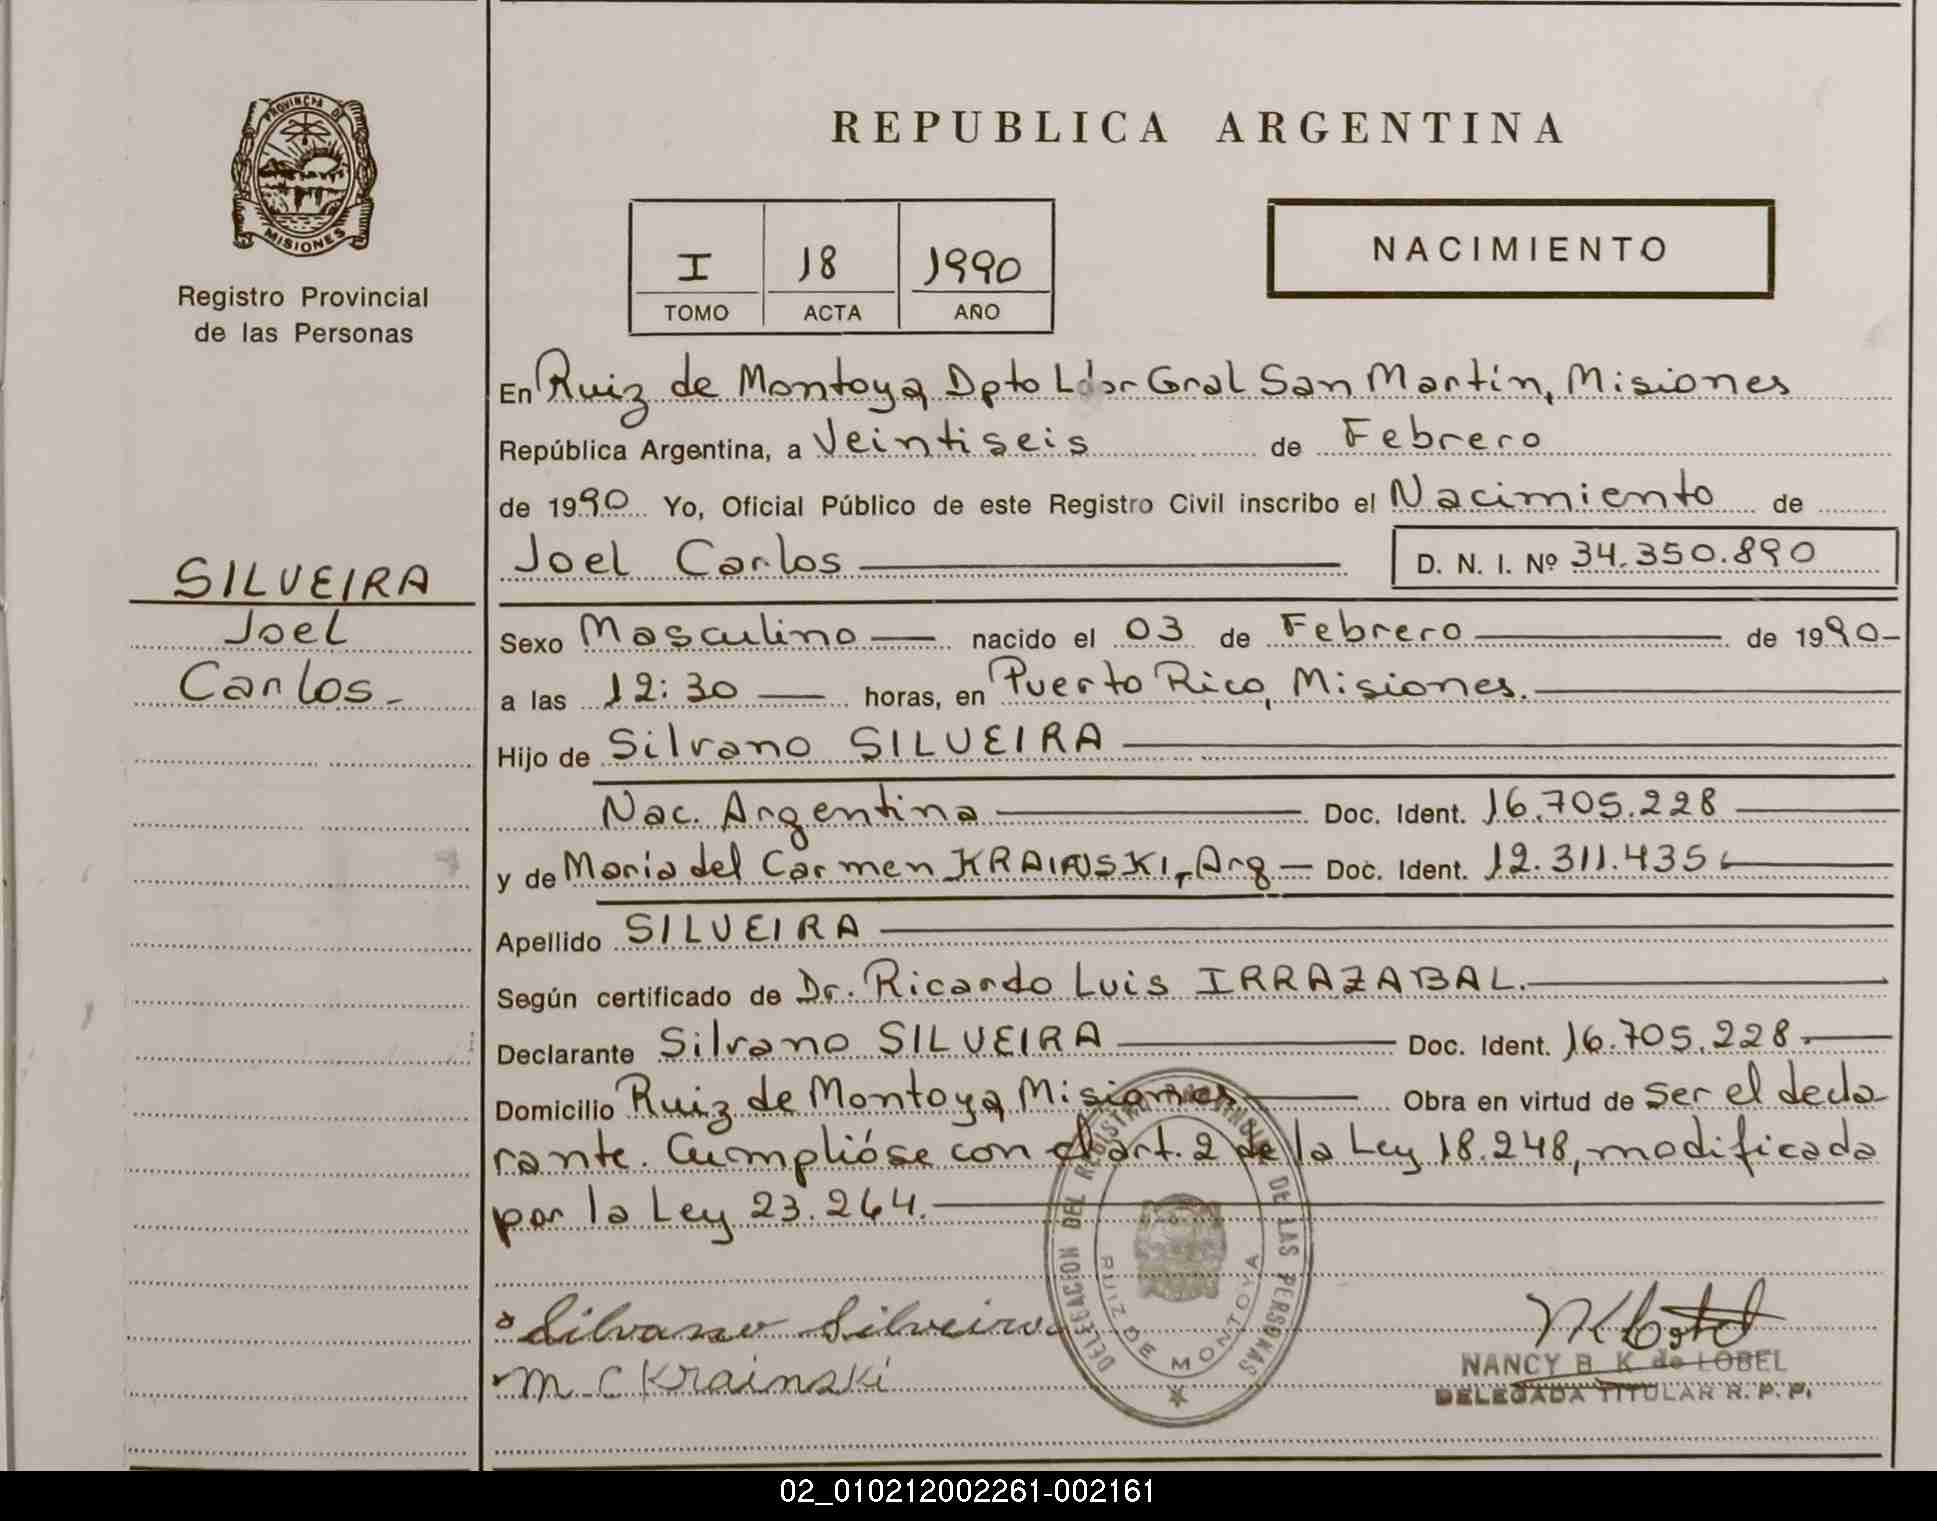 PROVINCIA DE
MISIONES
Registro Provincial
de las Personas
REPUBLICA ARGENTINA
I 18 1990
TOMO ACTA AÑO
NACIMIENTO
En Ruiz de Montoya Dpto Ldor Gral San Martín, Misiones
República Argentina, a Veintiseis de Febrero
de 1990 Yo, Oficial Público de este Registro Civil inscribo el Nacimiento de
Joel Carlos D. N. I. Nº 34.350.890
SILVEIRA
Joel
Carlos
Sexo Masculino nacido el 03 de Febrero de 1990
a las 12:30 horas, en Puerto Rico, Misiones.
Hijo de Silvano SILVEIRA
Nac. Argentina Doc. Ident. 16.705.228
y de María del Carmen KRAINSKI, Arg Doc. Ident. 12.311.435
Apellido SILVEIRA
Según certificado de Dr. Ricardo Luis IRRAZABAL.
Declarante Silvano SILVEIRA Doc. Ident. 16.705.228.
Domicilio Ruiz de Montoya Misiones Obra en virtud de ser el decla
rante. Cumplióse con el art. 2 de la Ley 18.248, modificada
por la Ley 23.264.
DELEGACION DEL REGISTRO PROVINCIAL DE LAS PERSONAS
RUIZ DE MONTOYA
Silvano Silveira
M. C Krainski
NANCY B. K. de LOBEL
DELEGADA TITULAR R. P. P.
02_010212002261-002161